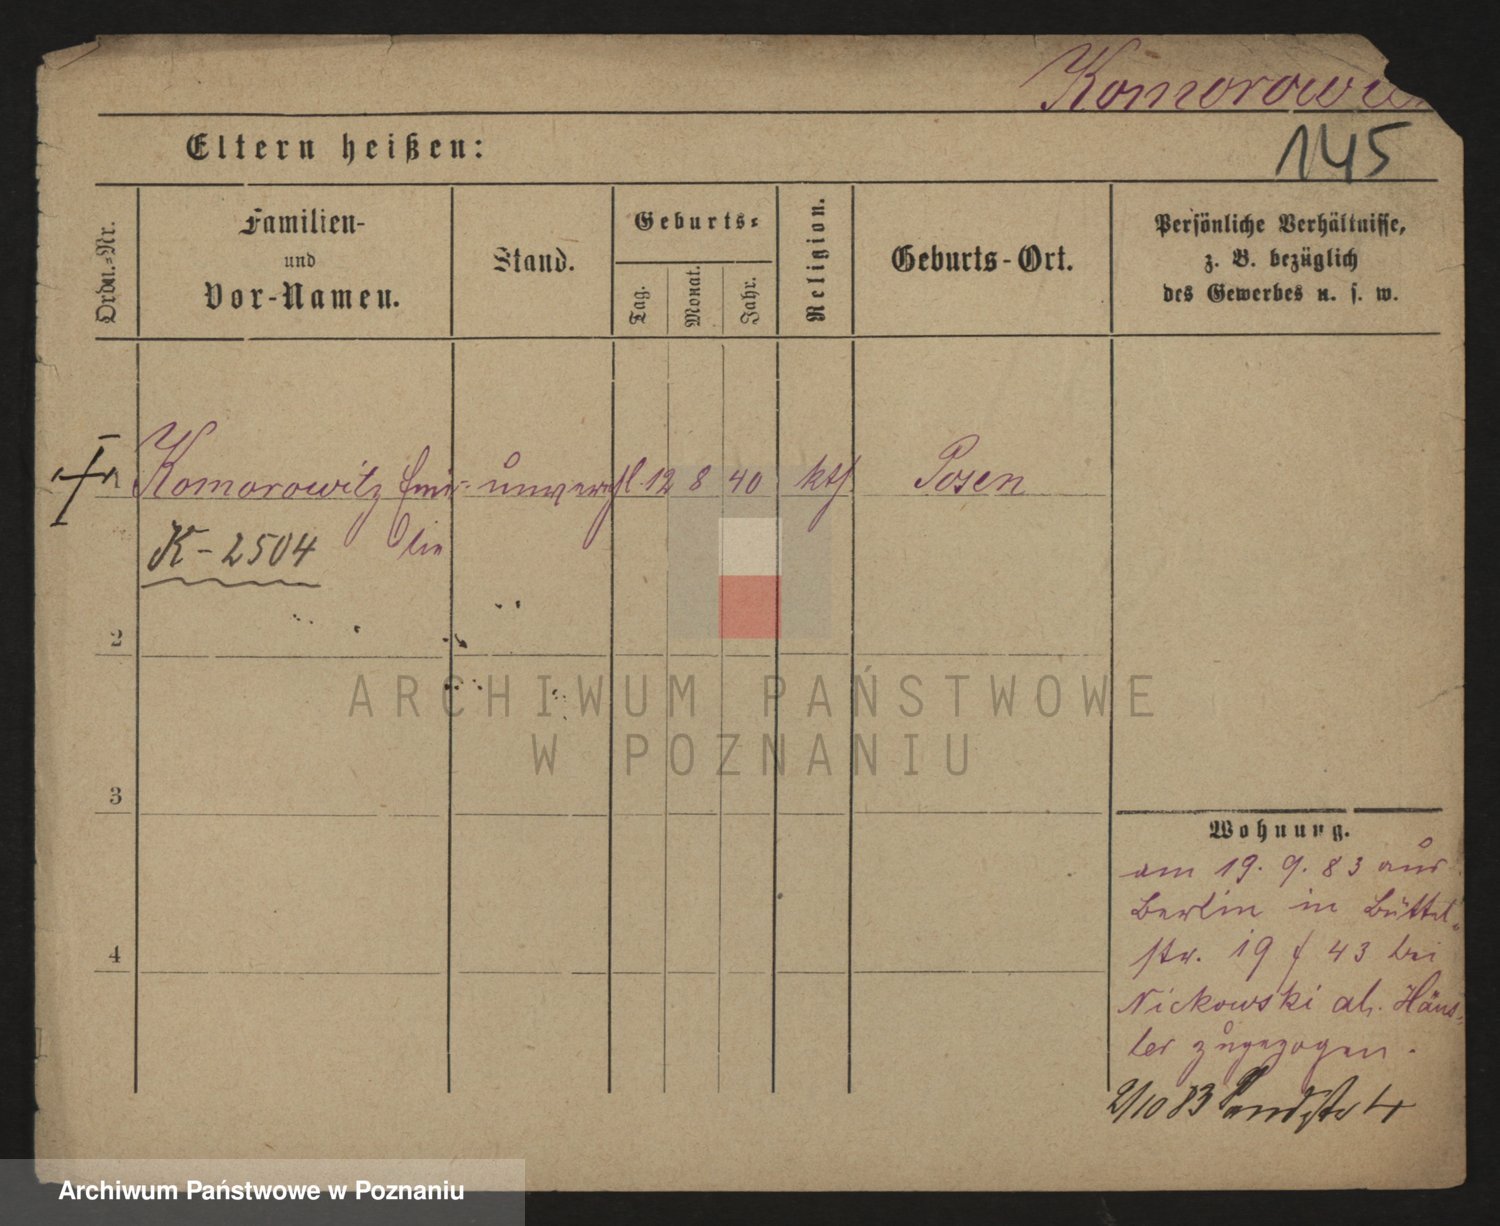 Komorowitz
145
Eltern heißen:
Ordn.-Nr.
Familien-
und
Vor-Namen.
Stand.
Geburts-
Tag.
Monat.
Jahr.
Religion.
Geburts-Ort.
Persönliche Verhältnisse,
z. B. bezüglich
des Gewerbes u. s. w.
1 Komorowitz Emi- unverehl. 12 8 40 kth Posen
lie
K-2504
2
3
4
Wohnung.
am 19. 9. 83 aus
Berlin in Büttel-
str. 19 / 43 bei
Nickowski als Häus-
ler zugezogen.
2/10 83
ARCHIWUM PAŃSTWOWE
W POZNANIU
Archiwum Państwowe w Poznaniu